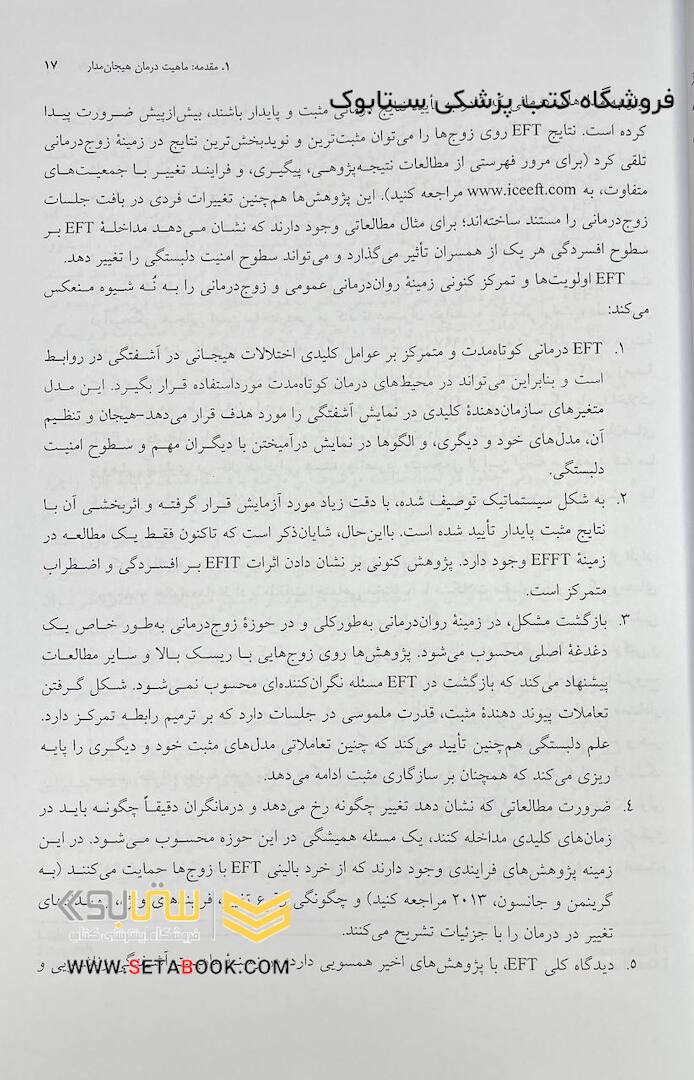 ۱. مقدمه: ماهیت درمان هیجان‌مدار ۱۷
فروشگاه کتب پزشکی ستابوک
نتایج درمانی مثبت و پایدار باشند، بیش‌ازپیش ضرورت پیدا
کرده است. نتایج EFT روی زوج‌ها را می‌توان مثبت‌ترین و نویدبخش‌ترین نتایج در زمینهٔ زوج‌درمانی
تلقی کرد (برای مرور فهرستی از مطالعات نتیجه‌پژوهی، پیگیری، و فرایند تغییر با جمعیت‌های
متفاوت، به www.iceeft.com مراجعه کنید). این پژوهش‌ها هم‌چنین تغییرات فردی در بافت جلسات
زوج‌درمانی را مستند ساخته‌اند؛ برای مثال مطالعاتی وجود دارند که نشان می‌دهد مداخلهٔ EFT بر
سطوح افسردگی هر یک از همسران تأثیر می‌گذارد و می‌تواند سطوح امنیت دلبستگی را تغییر دهد.
EFT اولویت‌ها و تمرکز کنونی زمینهٔ روان‌درمانی عمومی و زوج‌درمانی را به نُه شیوه منعکس
می‌کند:
۱. EFT درمانی کوتاه‌مدت و متمرکز بر عوامل کلیدی اختلالات هیجانی در آشفتگی در روابط
است و بنابراین می‌تواند در محیط‌های درمان کوتاه‌مدت مورداستفاده قرار بگیرد. این مدل
متغیرهای سازمان‌دهندهٔ کلیدی در نمایش آشفتگی را مورد هدف قرار می‌دهد-هیجان و تنظیم
آن، مدل‌های خود و دیگری، و الگوها در نمایش درآمیختن با دیگران مهم و سطوح امنیت
دلبستگی.
۲. به شکل سیستماتیک توصیف شده، با دقت زیاد مورد آزمایش قرار گرفته و اثربخشی آن با
نتایج مثبت پایدار تأیید شده است. بااین‌حال، شایان‌ذکر است که تاکنون فقط یک مطالعه در
زمینهٔ EFFT وجود دارد. پژوهش کنونی بر نشان دادن اثرات EFIT بر افسردگی و اضطراب
متمرکز است.
۳. بازگشت مشکل، در زمینهٔ روان‌درمانی به‌طورکلی و در حوزهٔ زوج‌درمانی به‌طور خاص یک
دغدغهٔ اصلی محسوب می‌شود. پژوهش‌ها روی زوج‌هایی با ریسک بالا و سایر مطالعات
پیشنهاد می‌کند که بازگشت در EFT مسئله نگران‌کننده‌ای محسوب نمی‌شود. شکل گرفتن
تعاملات پیوند دهندهٔ مثبت، قدرت ملموسی در جلسات دارد که بر ترمیم رابطه تمرکز دارد.
علم دلبستگی هم‌چنین تأیید می‌کند که چنین تعاملاتی مدل‌های مثبت خود و دیگری را پایه
ریزی می‌کند که همچنان بر سازگاری مثبت ادامه می‌دهد.
۴. ضرورت مطالعاتی که نشان دهد تغییر چگونه رخ می‌دهد و درمانگران دقیقاً چگونه باید در
زمان‌های کلیدی مداخله کنند، یک مسئله همیشگی در این حوزه محسوب می‌شود. در این
زمینه پژوهش‌های فرایندی وجود دارند که از خرد بالینی EFT با زوج‌ها حمایت می‌کنند (به
گرینمن و جانسون، ۲۰۱۳ مراجعه کنید) و چگونگی
تغییر در درمان را با جزئیات تشریح می‌کنند.
ستابوک
فروشگاه اینترنتی کتاب
۵. دیدگاه کلی EFT، با پژوهش‌های اخیر همسویی دارد
WWW.SETABOOK.COM